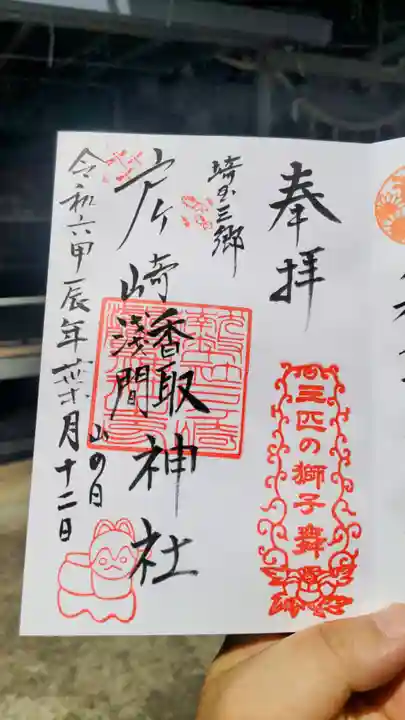 奉拝
三匹の獅子舞
埼玉三郷
戸ヶ崎
香取
浅間
神社
山の日
令和六甲辰年葉月十二日